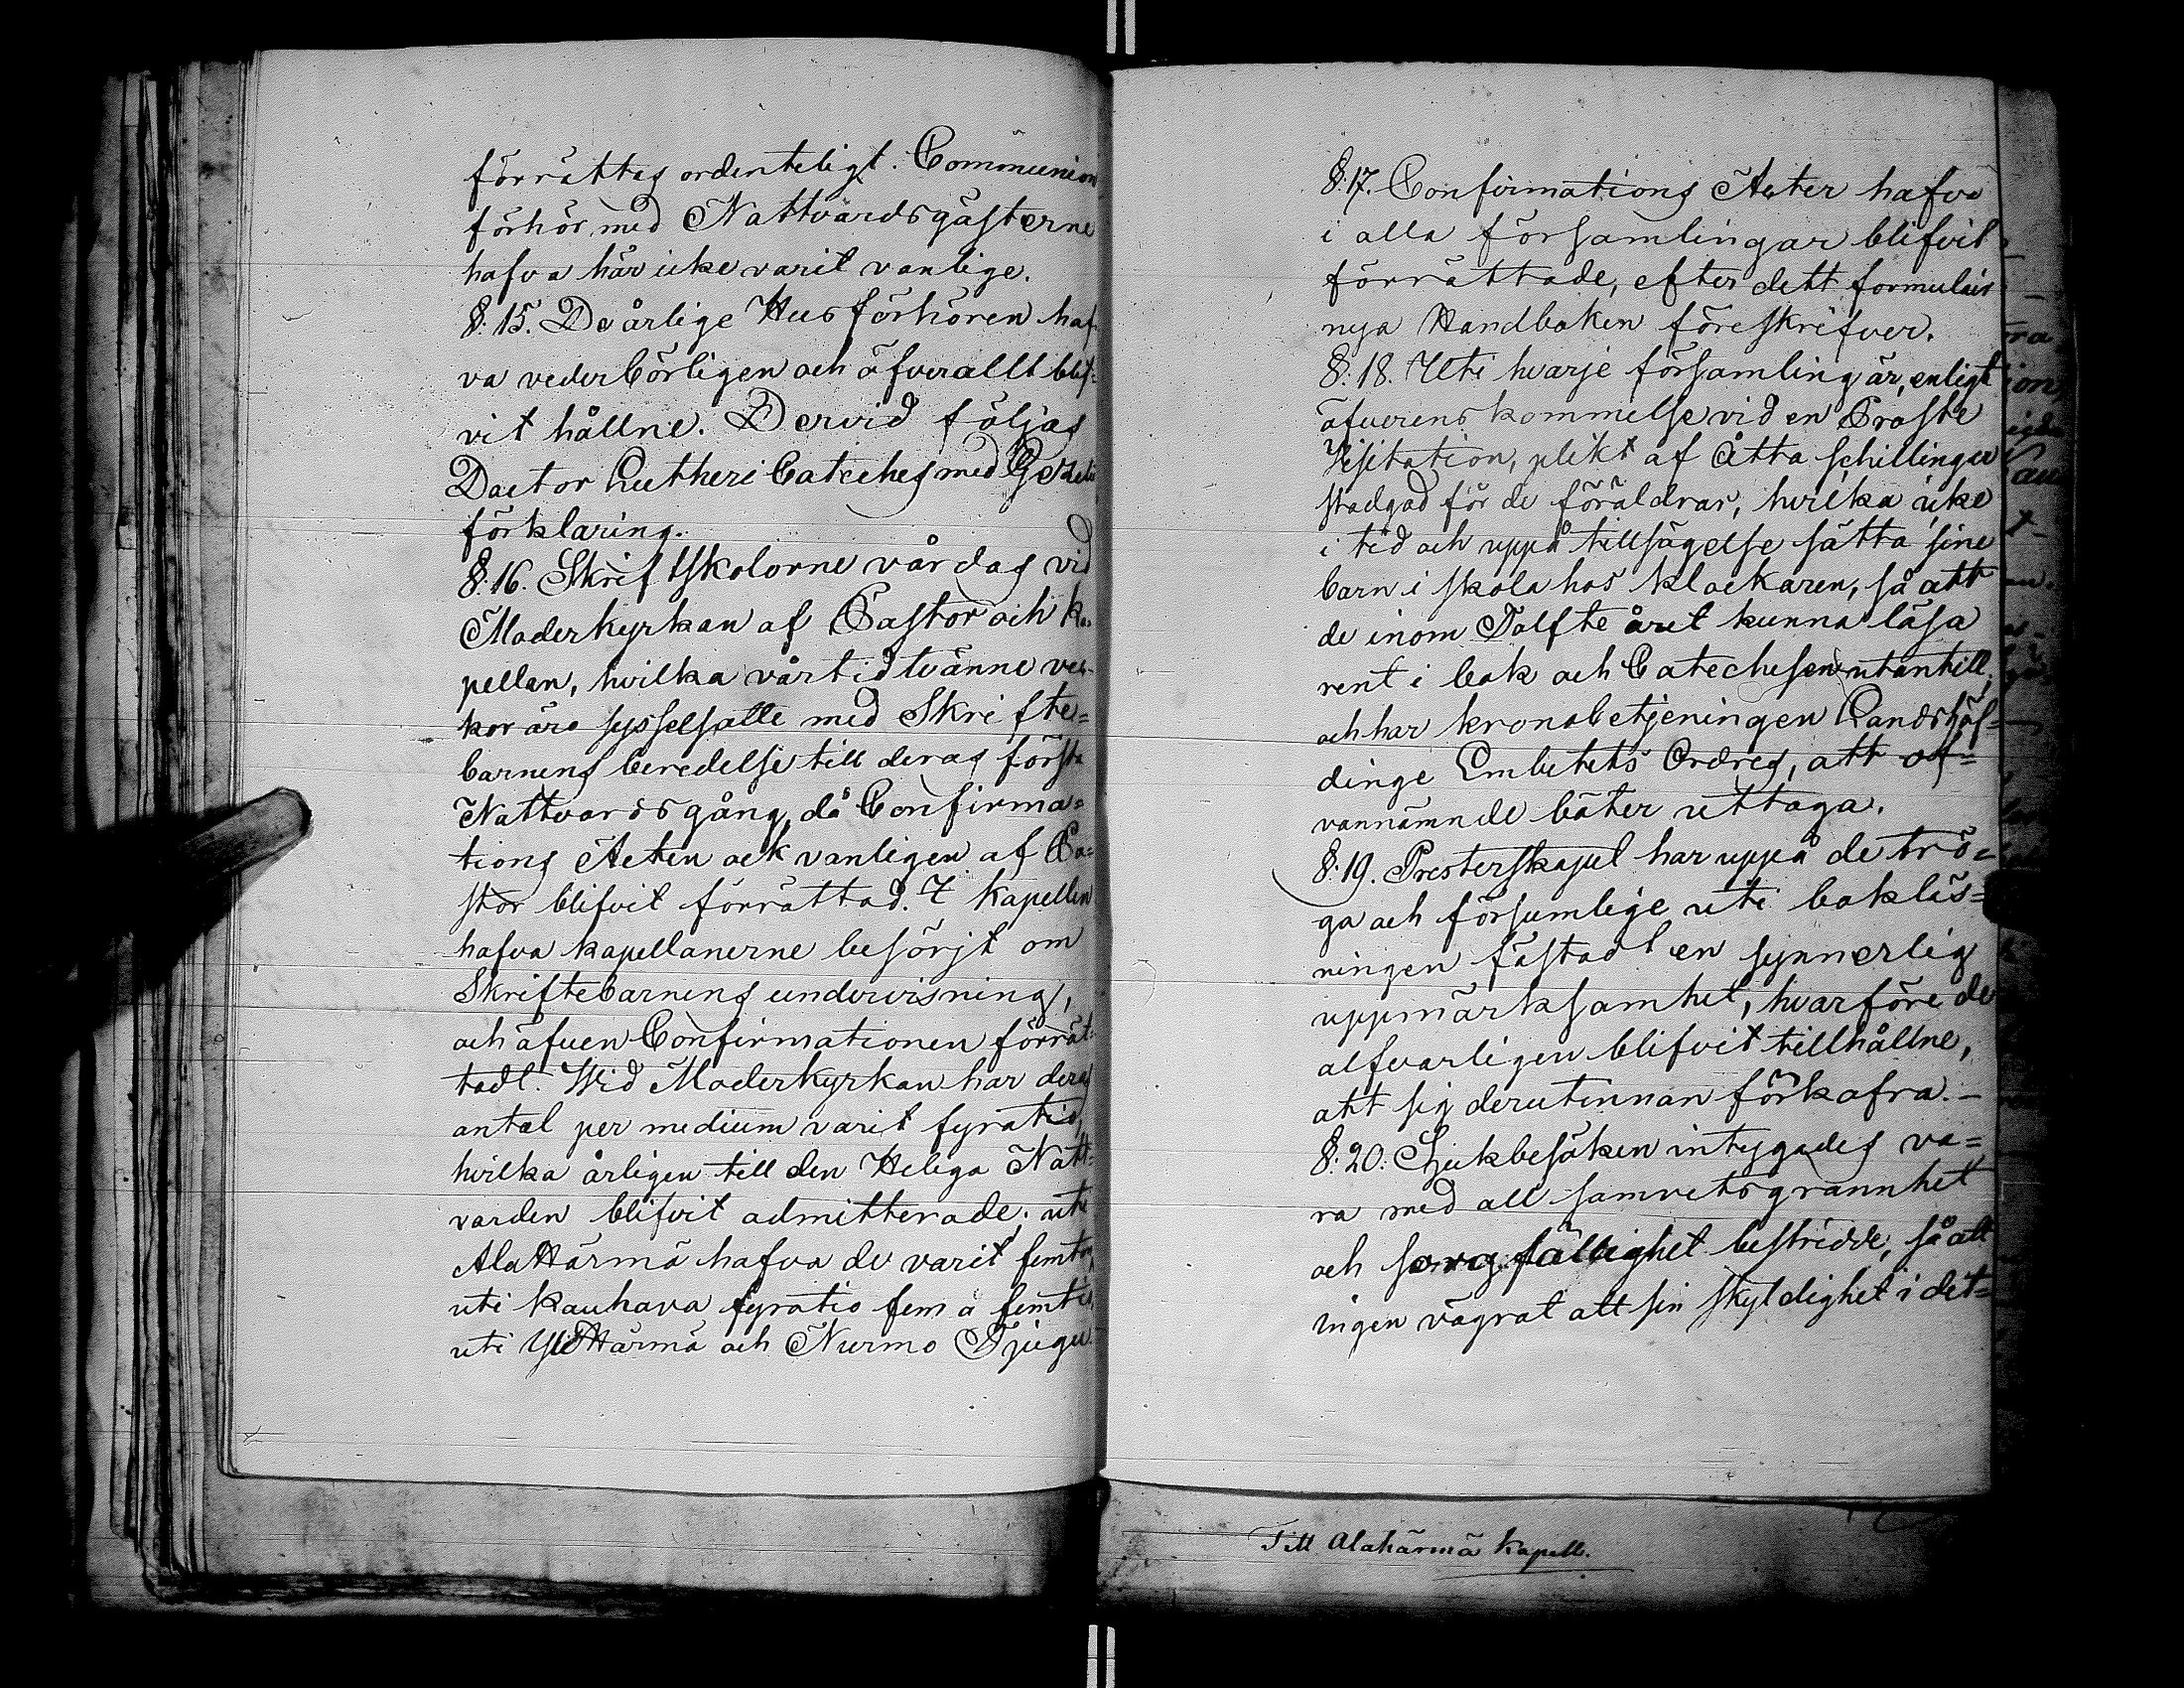 förrättas ordenteligt. Communion
förhör med Nattvardsgästerne
hafva här icke varit vanlige.
§: 15. De årlige Husförhören haf-
va vederbörligen och öfverallt blif=
vit hållne. Dervid följas
Doctor Lutheri Cateches med Gezelii
förklaring.
§: 16. Skriftskolorne vårdas vid
Moderkyrkan af Pastor och Ka-
pellan, hvilka vårtid tvänne vec-
kor äro sysselsatte med Skrifte=
barnens beredelse till deras första
Nattvardsgång, då Confirma=
tions Acten ock vanligen af Pa=
stor blifvit förrättad. I Kapellen
hafva kapellanerne besörjt om
Skriftebarnens undervisning,
och äfven Confirmationen förrät=
tadt. Wid Moderkyrkan har deras
antal per medium varit fyratio,
hvilka årligen till den Heliga Natt=
varden blifvit admitterade; uti
AlaHärmä hafva de varit femton,
uti Kauhava fyratio fem à femtio,
uti YliHärmä och Nurmo Tjugu.
§: 17. Confirmations Acter hafva
i alla församlingar blifvit
förrättade, efter dett formulair
nya Handboken föreskrifver.
§: 18. Uti hvarje församling är, enligt
öfverenskommelse vid en Proste
Visitation, plikt af Åtta schillingar
stadgad för de föräldrar, hvilka icke
i tid och uppå tillsägelse sätta sine
barn i skola hos klockaren, så att
de inom Tolfte året kunna läsa
rent i bok och Catechesen utantill,
och har kronobetjeningen Landshöf=
dinge Embetets Ordres, att of=
vannämnde böter uttaga.
§: 19. Presterskapet har uppå de trö=
ga och försumlige uti bokläs=
ningen fästadt en synnerlig
uppmärksamhet, hvarföre de
alfvarligen blifvit tillhållne,
att sig derutinnan förkofra. –
§: 20: Sjukbesöken intygades va=
ra med all samvetsgrannhet
och sorgfällighet bestridde, så att
ingen vägrat att sin skyldighet i det=
Till Alahärmä Kapell.